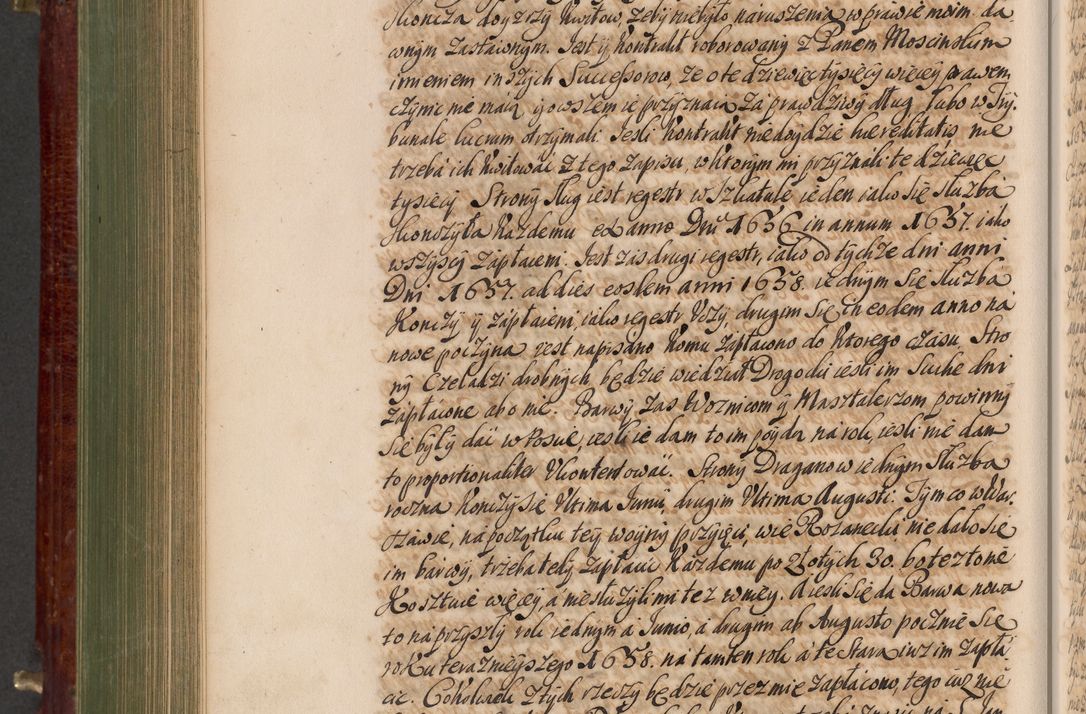 skończa doyzrzy kwitow, żeby niebyło naruszenia w prawie moim da
wnym Zastawnym. Jest ÿ Kontrakt roborowany z Panem Moscinskim
imieniem inszych Successorow, że o te dziewięc tysięcy więcey prawem
czynic nie maią, y owszem ie przyznaią za prawdziwy dług, lubo w Try
bunale lucrum otrzymali. Jesli Kontrakt niedoydzie haereditatis nie
trzeba ich kwitowac z tego Zapisu, w ktorym mi przyznali te dziewięc
tysięcy. Strony sług iest regestr w Szkatule ieden iako się służba
skonczyła każdemu ex anno Dni 1636 in annum 1637. iako
wszyscy zapłaceni. Jest zas drugi regestr, iako od tychże dni anni
Dni 1637. ad dies eosdem anni 1638. iednym się służba
Konczy, y zapłaceni, iako regestr Uczy, drugim się in eodem anno na
nowe poczyna iest napisano komu zapłacono do ktorego czasu. Stro
ny Czeladzi drobnych, będzie wiedział Drogocki iesli im Suche dni
zapłacone abo nie. Barwy zas Woznicom y Masztalerzom powinny
się były dać w Poscie, iesli ie dam to im poyda na rok, iesli nie dam
to proportionaliter Ukontentować. Strony Draganow iednym służba
roczna konczy się Ultima Junij, drugim Ultima Augusti. Tym co w War
szawie, na początku tey woyny przyięci, w Rożanecki nie dało się
im barwy, trzeba tedy zapłacic każdemu po Złotych 30. bo też to nie
Kosztuie więcey, a niesłużyli mi też wniey. A iesli się da Barwa nowa
to na przyszły rok iednym a Junio, a drugim ab Augusto pocznie się
roku teraznieyszego 1638. na tamten rok a te Stara iuż im zapła
ac. Cokolwiek z tych rzeczy będzie przez mie zapłacono, tego iuż nie